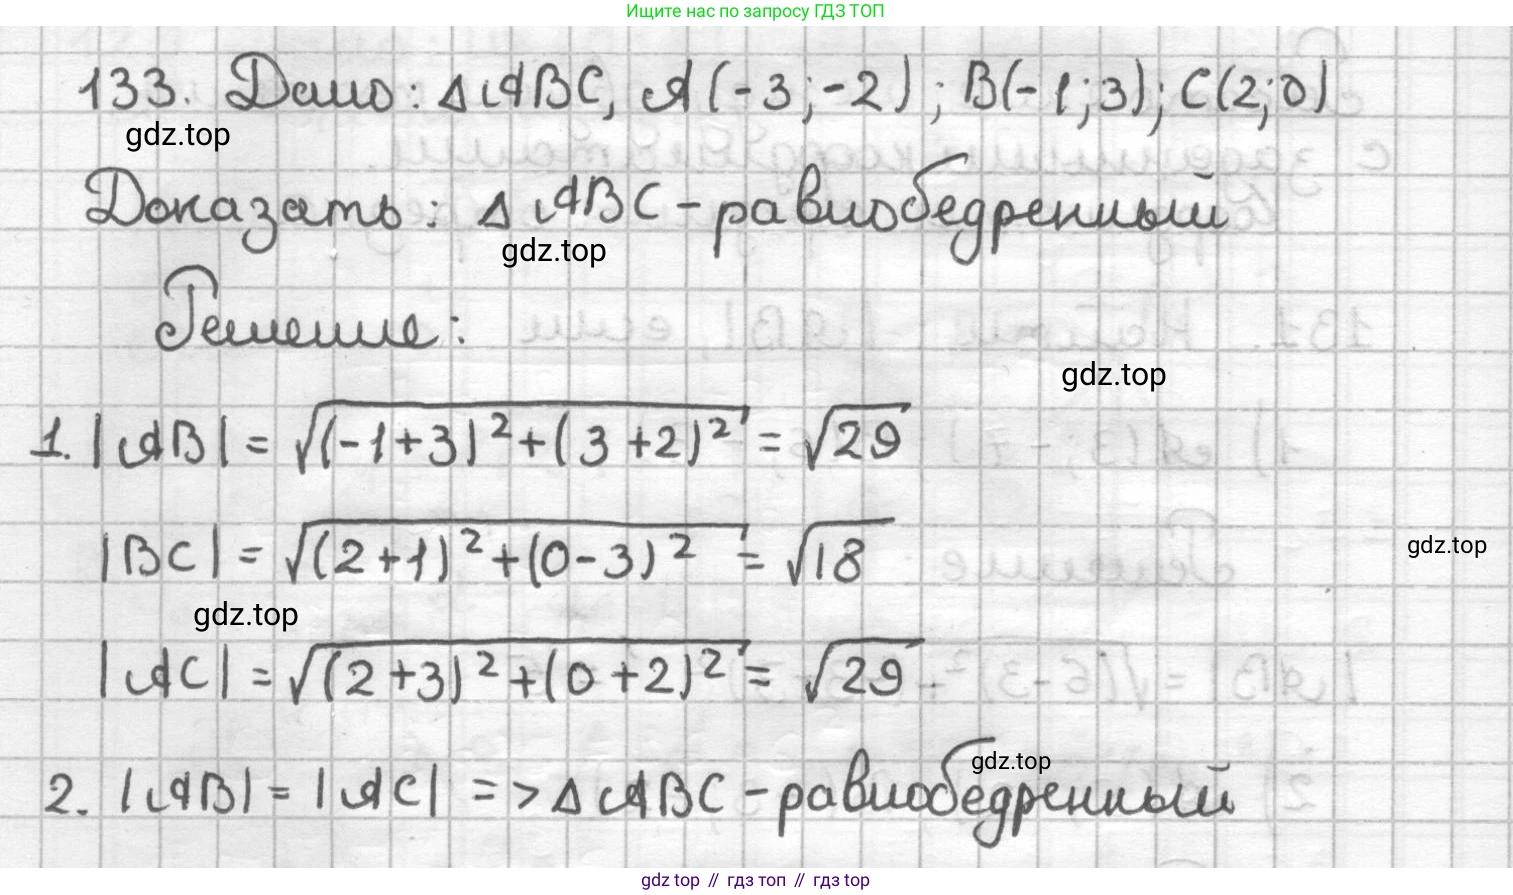 Ищите нас по запросу ГДЗ ТОП
133. Дано: △ABC, A(-3;-2); B(-1;3); C(2;0)
gdz.top
Доказать: △ABC - равнобедренный
gdz.top
Решение:
gdz.top
1. |AB| = √((-1+3)²+(3+2)²) = √29
|BC| = √((2+1)²+(0-3)²) = √18
gdz.top
gdz.top
|AC| = √((2+3)²+(0+2)²) = √29
gdz.top
2. |AB| = |AC| => △ABC - равнобедренный
gdz top // гдз топ // гдз top